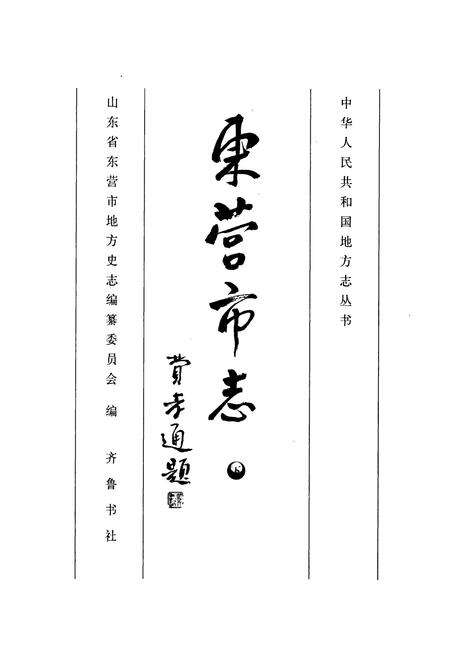 中华人民共和国地方志丛书
東营市志
下
費孝通題
山东省东营市地方史志编纂委员会 编 齐鲁书社